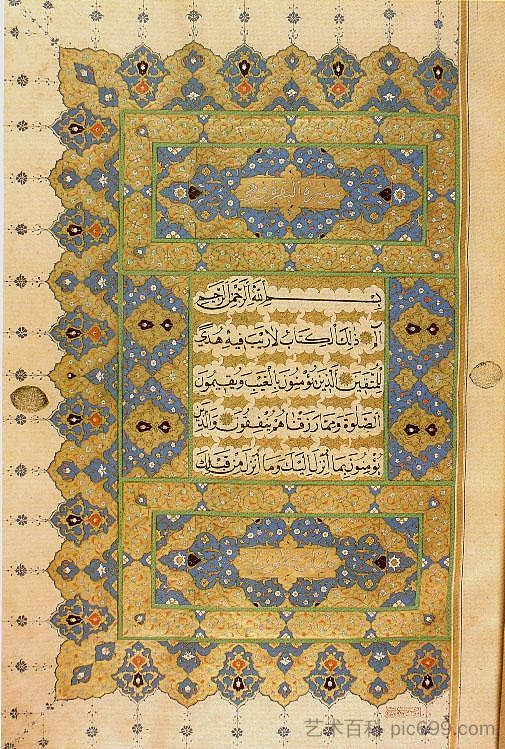 سورة البقرة
بسم الله الرحمن الرحيم
الم ذلك الكتاب لا ريب فيه هدى
للمتقين الذين يؤمنون بالغيب ويقيمون
الصلوة ومما رزقناهم ينفقون والذين
يؤمنون بما انزل اليك وما انزل من قبلك
艺术百科 pic699.com